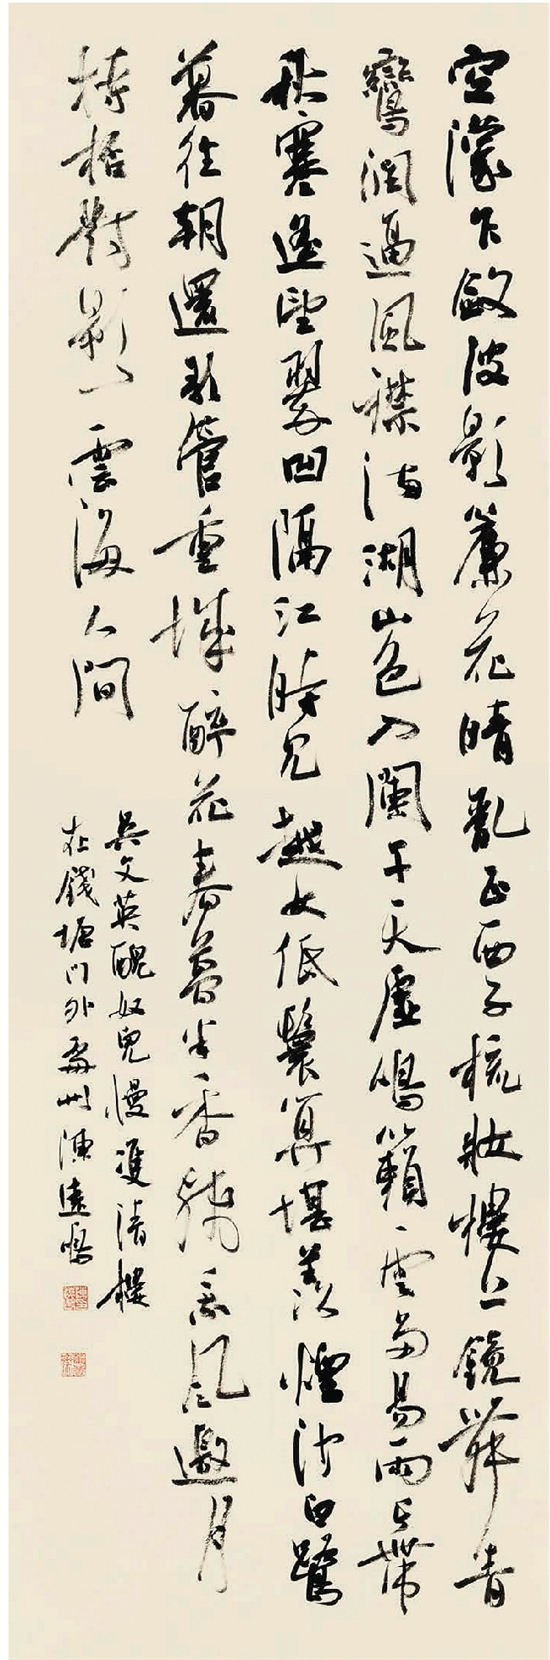 空濛乍斂波影簾花晴亂正西子梳妝樓上鏡舞青
鸞潤逼風襟滿湖山色入闌干天虛鳴籟雲多易雨長帶
秋寒遙望翠凹隔江時見越女低鬟算堪羨煙沙白鷺
暮往朝還歌管重城醉花春夢半香殘乘風邀月
持杯對影雲海人間
吳文英醜奴兒慢雙清樓
在錢塘門外處州陳遠